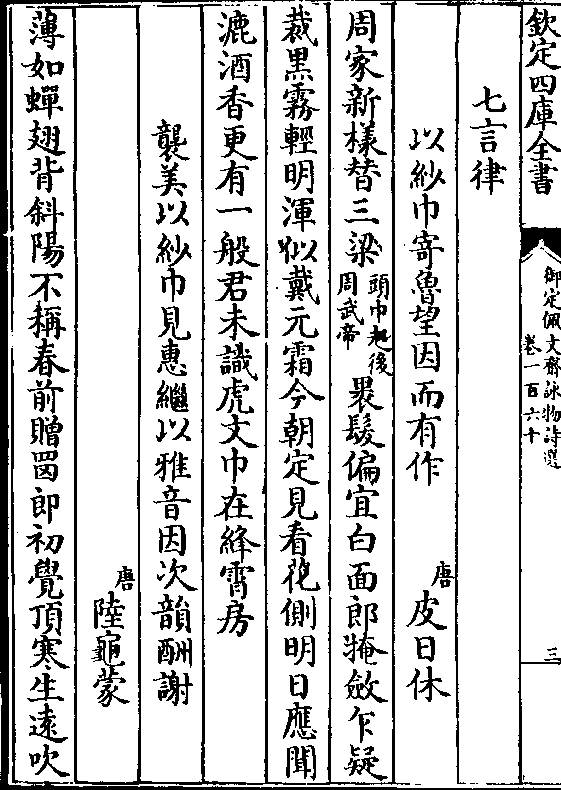 欽定四庫全書
御定佩文齋詠物詩選
卷一百六十
三
七言律
以紗巾寄魯望因而有作
唐
皮日休
周家新樣替三梁
頭巾起後
周武帝
裹髮偏宜白面郎掩斂乍疑
裁黑霧輕明渾似戴元霜今朝定見看花側明日應聞
漉酒香更有一般君未識虎文巾在絳霄房
襲美以紗巾見惠繼以雅音因次韻酬謝
唐
陸龜蒙
薄如蟬翅背斜陽不稱春前贈罔郎初覺頂寒生遠吹